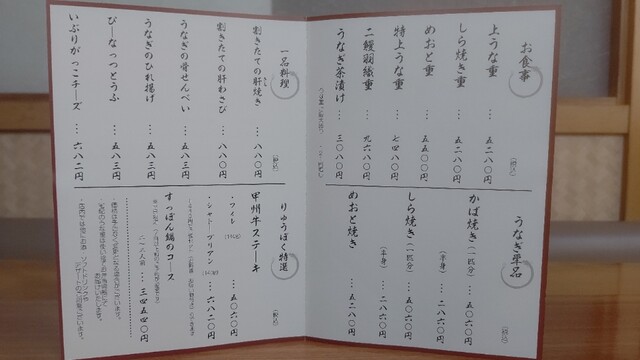 お食事
(税込)
上うな重 … 五二八〇円
しら焼き重 … 五二八〇円
めおと重 … 五五〇〇円
特上うな重 … 七四八〇円
二鰻羽織重 … 九六八〇円
うなぎ茶漬け … 三〇八〇円
うなぎ単品
(税込)
かば焼き(一匹分) … 五〇六〇円
(半身) … 二八六〇円
しら焼き(一匹分) … 五〇六〇円
(半身) … 二八六〇円
めおと焼き … 五二八〇円
一品料理
(税込)
割きたての肝焼き … 八八〇円
割きたての肝わさび … 八八〇円
うなぎの骨せんべい … 五八三円
うなぎのひれ揚げ … 五八三円
ぴーなっつとうふ … 五八三円
いぶりがっこチーズ … 六八二円
りゅうぼく特選
(税込)
甲州牛ステーキ
・フィレ … 五〇六〇円
・シャトーブリアン … 六八二〇円
すっぽん鍋のコース
二~三人前 … 三四五四〇円